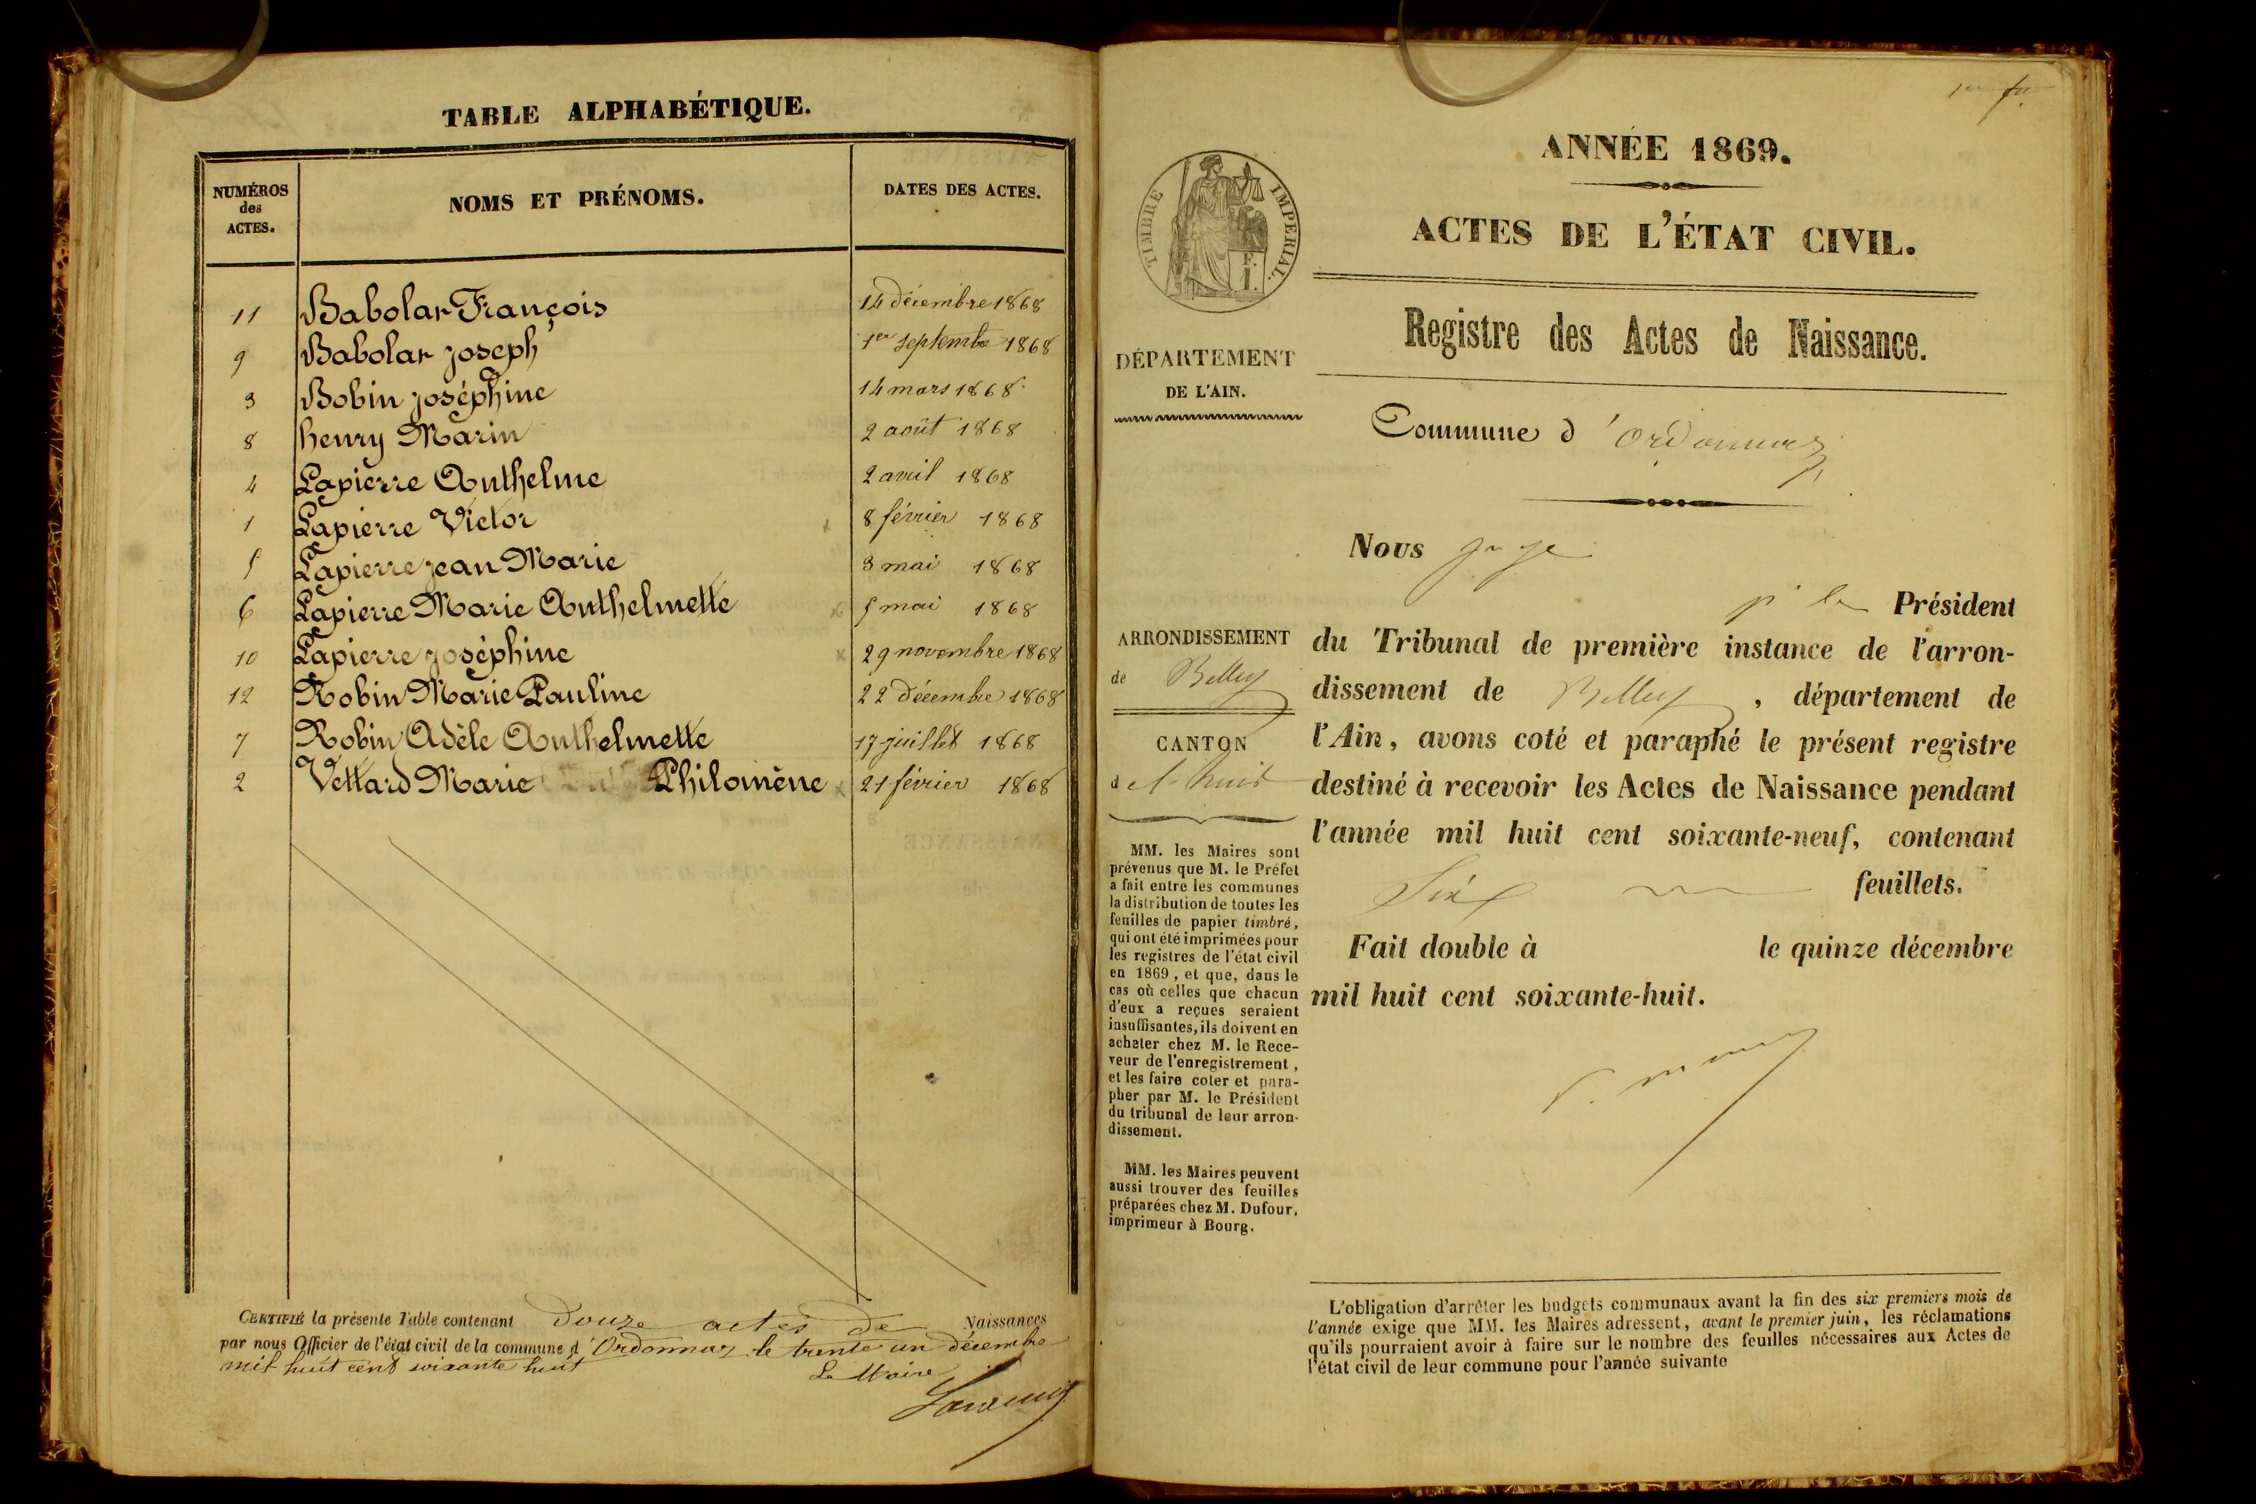 TABLE ALPHABÉTIQUE.
NUMÉROS des ACTES. NOMS ET PRÉNOMS. DATES DES ACTES.
11 Babolat François 14 décembre 1868
9 Babolat joseph 1er septembre 1868
3 Bobin joséphine 14 mars 1868
8 henry Marin 2 août 1868
4 Lapierre Anthelme 2 avril 1868
1 Lapierre Victor 8 février 1868
5 Lapierre jean Marie 3 mai 1868
6 Lapierre Marie Anthelmette 5 mai 1868
10 Lapierre joséphine 29 novembre 1868
12 Robin Marie Pauline 22 décembre 1868
7 Robin Adèle Anthelmette 17 juillet 1868
2 Vettard Marie Philomène 21 février 1868
CERTIFIÉ la présente Table contenant douze actes de Naissances
par nous Officier de l'état civil de la commune d'Ordonnaz le trente un décembre
mil huit cent soixante huit
Le Maire
TIMBRE IMPERIAL.
DÉPARTEMENT
DE L'AIN.
ARRONDISSEMENT
de Belley
CANTON
de
MM. les Maires sont
prévenus que M. le Préfet
a fait entre les communes
la distribution de toutes les
feuilles de papier timbré,
qui ont été imprimées pour
les registres de l'état civil
en 1869, et que, dans le
cas où celles que chacun
d'eux a reçues seraient
insuffisantes, ils doivent en
acheter chez M. le Rece-
veur de l'enregistrement,
et les faire coter et para-
pher par M. le Président
du tribunal de leur arron-
dissement.
MM. les Maires peuvent
aussi trouver des feuilles
préparées chez M. Dufour,
imprimeur à Bourg.
ANNÉE 1869.
ACTES DE L'ÉTAT CIVIL.
Registre des Actes de Naissance.
Commune d'Ordonnaz
Nous juge
pr le Président
du Tribunal de première instance de l'arron-
dissement de Belley, département de
l'Ain, avons coté et paraphé le présent registre
destiné à recevoir les Actes de Naissance pendant
l'année mil huit cent soixante-neuf, contenant
Six feuillets.
Fait double à le quinze décembre
mil huit cent soixante-huit.
L'obligation d'arrêter les budgets communaux avant la fin des six premiers mois de
l'année exige que MM. les Maires adressent, avant le premier juin, les réclamations
qu'ils pourraient avoir à faire sur le nombre des feuilles nécessaires aux Actes de
l'état civil de leur commune pour l'année suivante